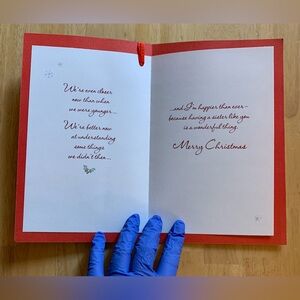 We're even closer
now than when
we were younger...
We're better now
at understanding
some things
we didn't then...
...and I'm happier than ever–
because having a sister like you
is a wonderful thing.
Merry Christmas